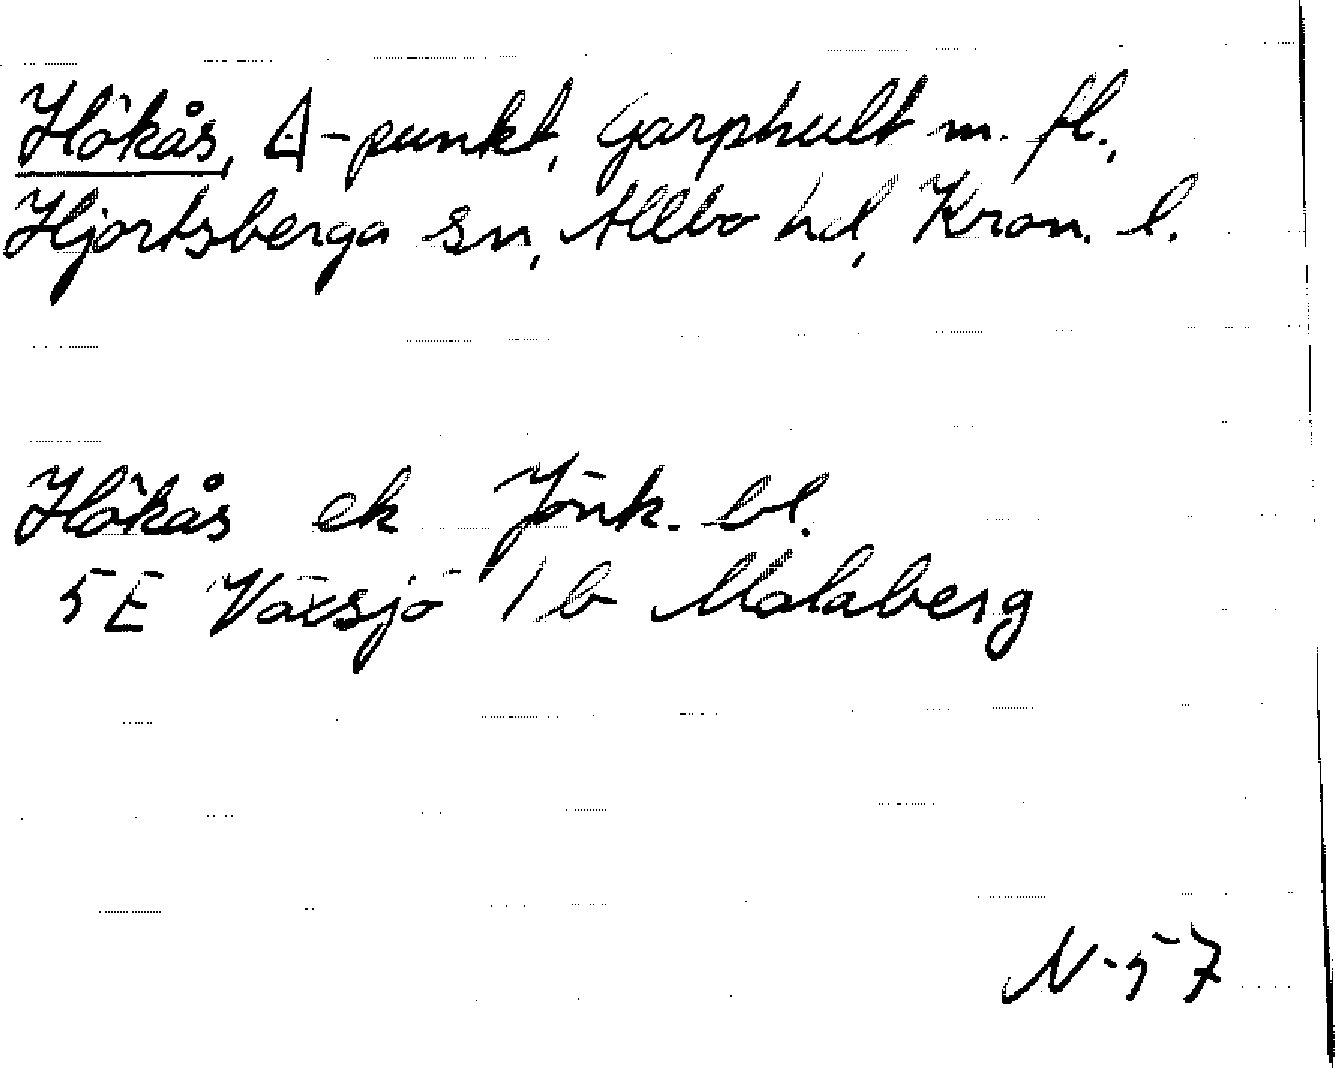 Hökås, A-punkt, Garphult m. fl.,
Hjortsberga sn, Allbo hd, Kron. l.
Hökås ek Jönk. bl.
5 E Växsjö 1 b Malaberg
N-57